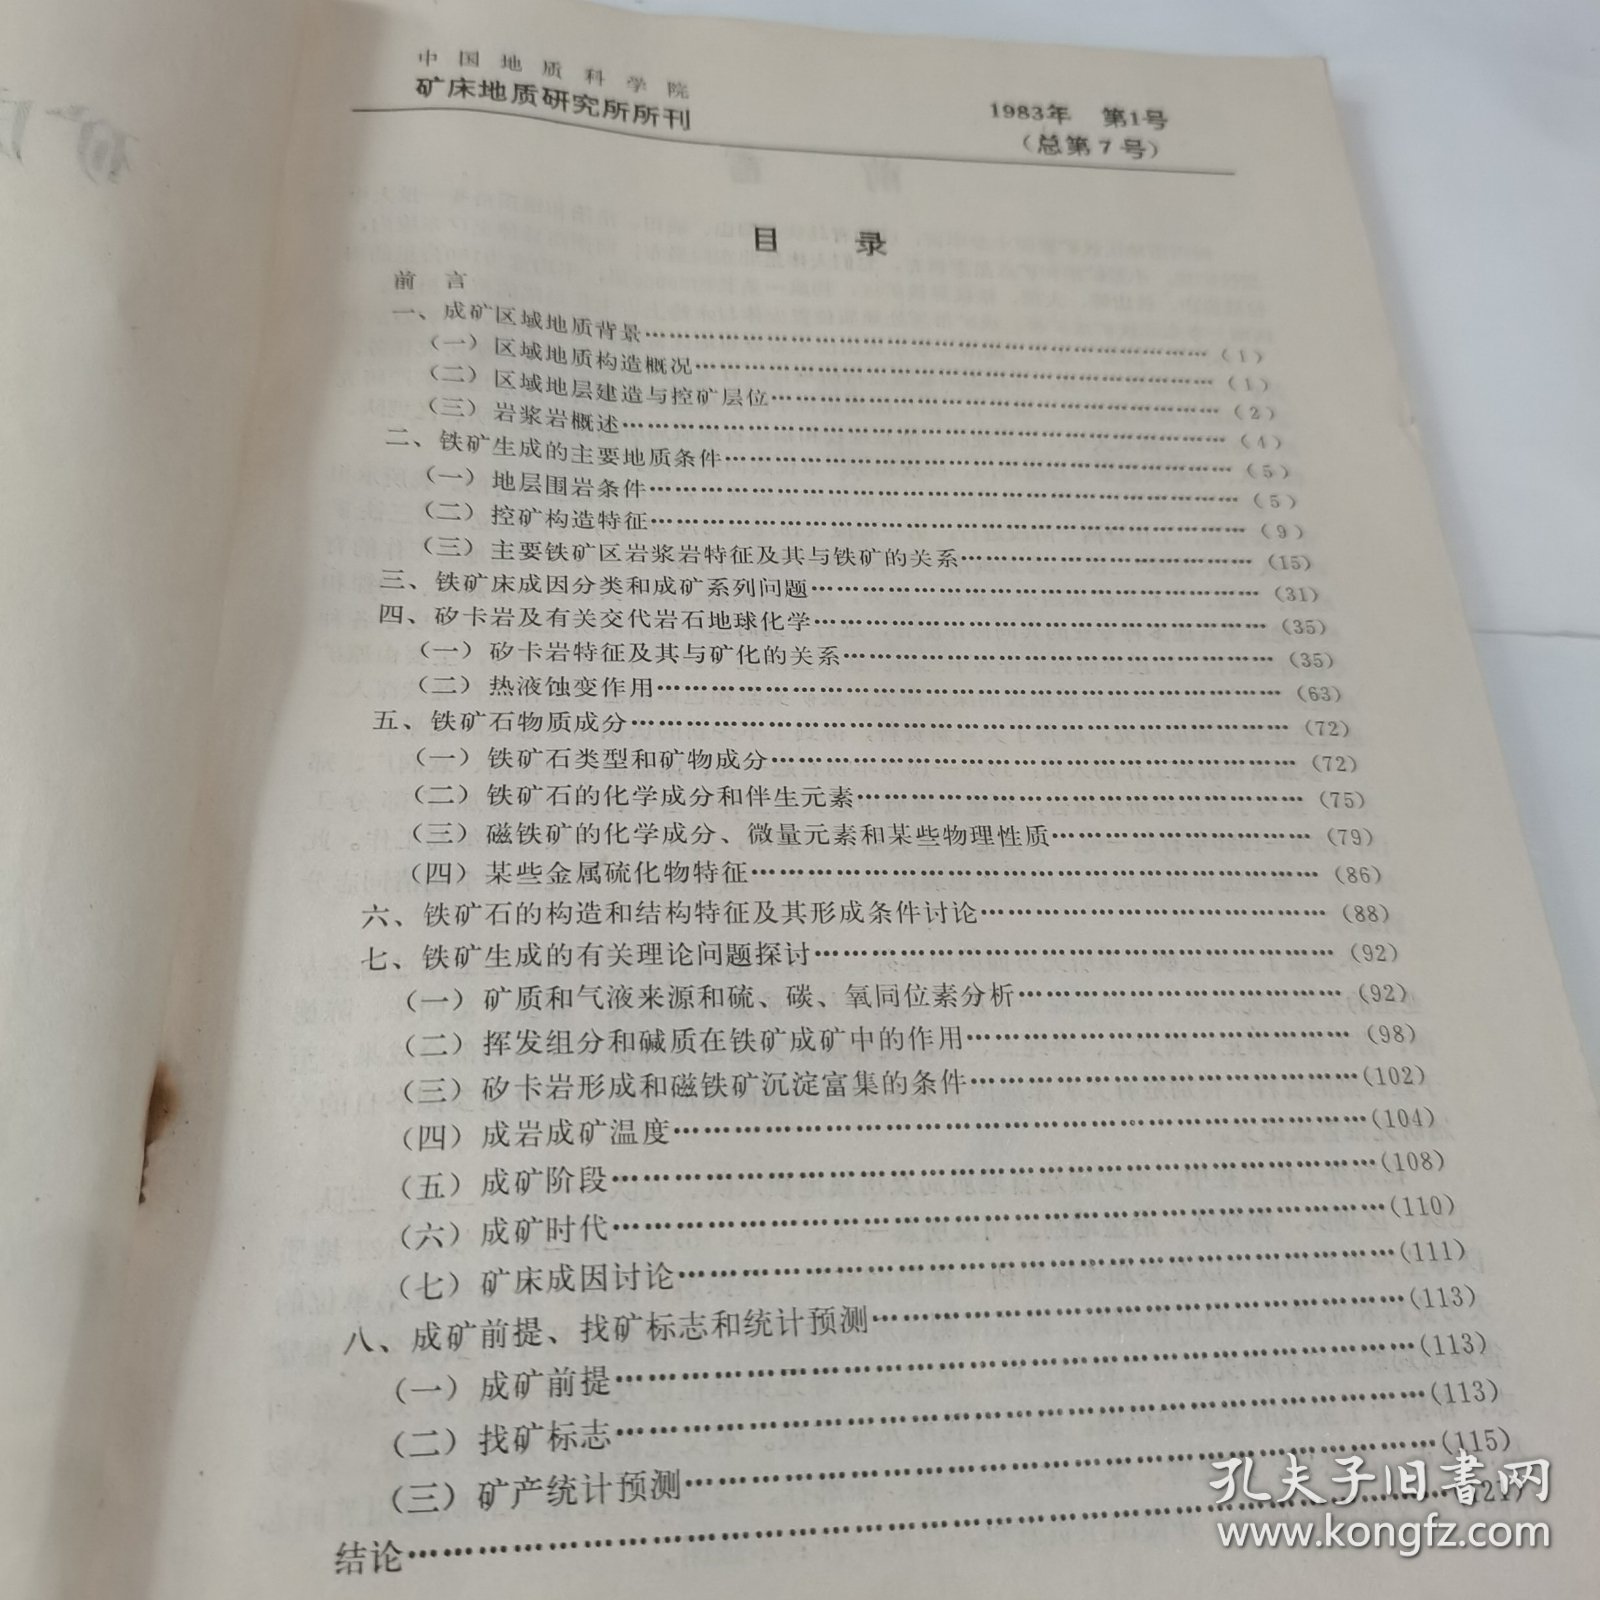 中国地质科学院
矿床地质研究所所刊
1983年 第1号
（总第7号）
目 录
前 言
一、成矿区域地质背景……（1）
（一）区域地质构造概况……（1）
（二）区域地层建造与控矿层位……（2）
（三）岩浆岩概述……（4）
二、铁矿生成的主要地质条件……（5）
（一）地层围岩条件……（5）
（二）控矿构造特征……（9）
（三）主要铁矿区岩浆岩特征及其与铁矿的关系……（15）
三、铁矿床成因分类和成矿系列问题……（31）
四、矽卡岩及有关交代岩石地球化学……（35）
（一）矽卡岩特征及其与矿化的关系……（35）
（二）热液蚀变作用……（63）
五、铁矿石物质成分……（72）
（一）铁矿石类型和矿物成分……（72）
（二）铁矿石的化学成分和伴生元素……（75）
（三）磁铁矿的化学成分、微量元素和某些物理性质……（79）
（四）某些金属硫化物特征……（86）
六、铁矿石的构造和结构特征及其形成条件讨论……（88）
七、铁矿生成的有关理论问题探讨……（92）
（一）矿质和气液来源和硫、碳、氧同位素分析……（92）
（二）挥发组分和碱质在铁矿成矿中的作用……（98）
（三）矽卡岩形成和磁铁矿沉淀富集的条件……（102）
（四）成岩成矿温度……（104）
（五）成矿阶段……（108）
（六）成矿时代……（110）
（七）矿床成因讨论……（111）
八、成矿前提、找矿标志和统计预测……（113）
（一）成矿前提……（113）
（二）找矿标志……（113）
（三）矿产统计预测……（115）
结论……
孔夫子旧书网
www.kongfz.com